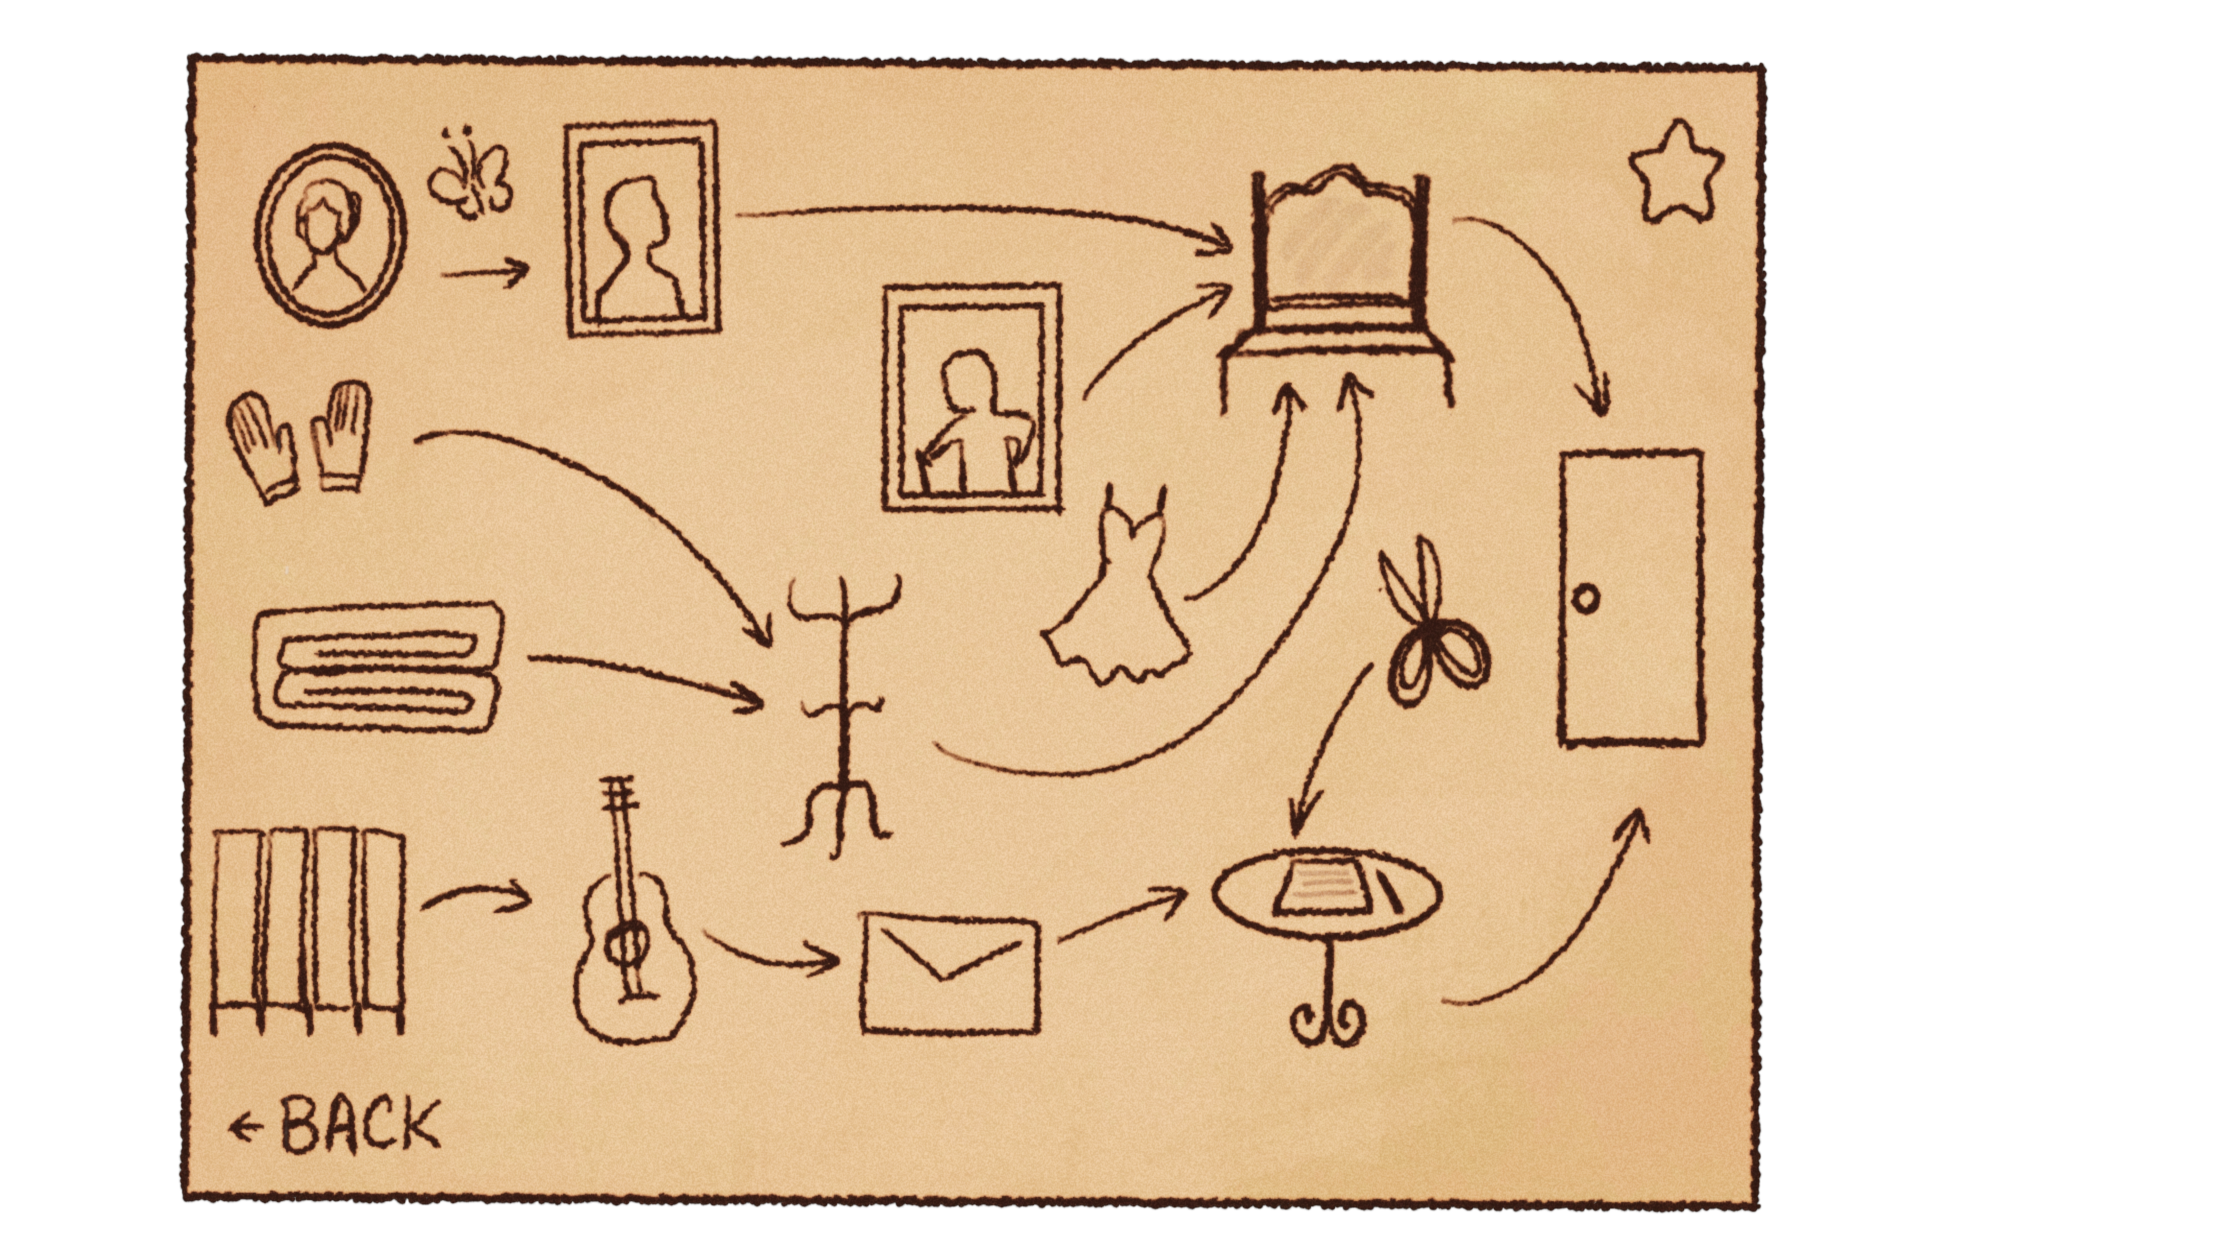 ←BACK